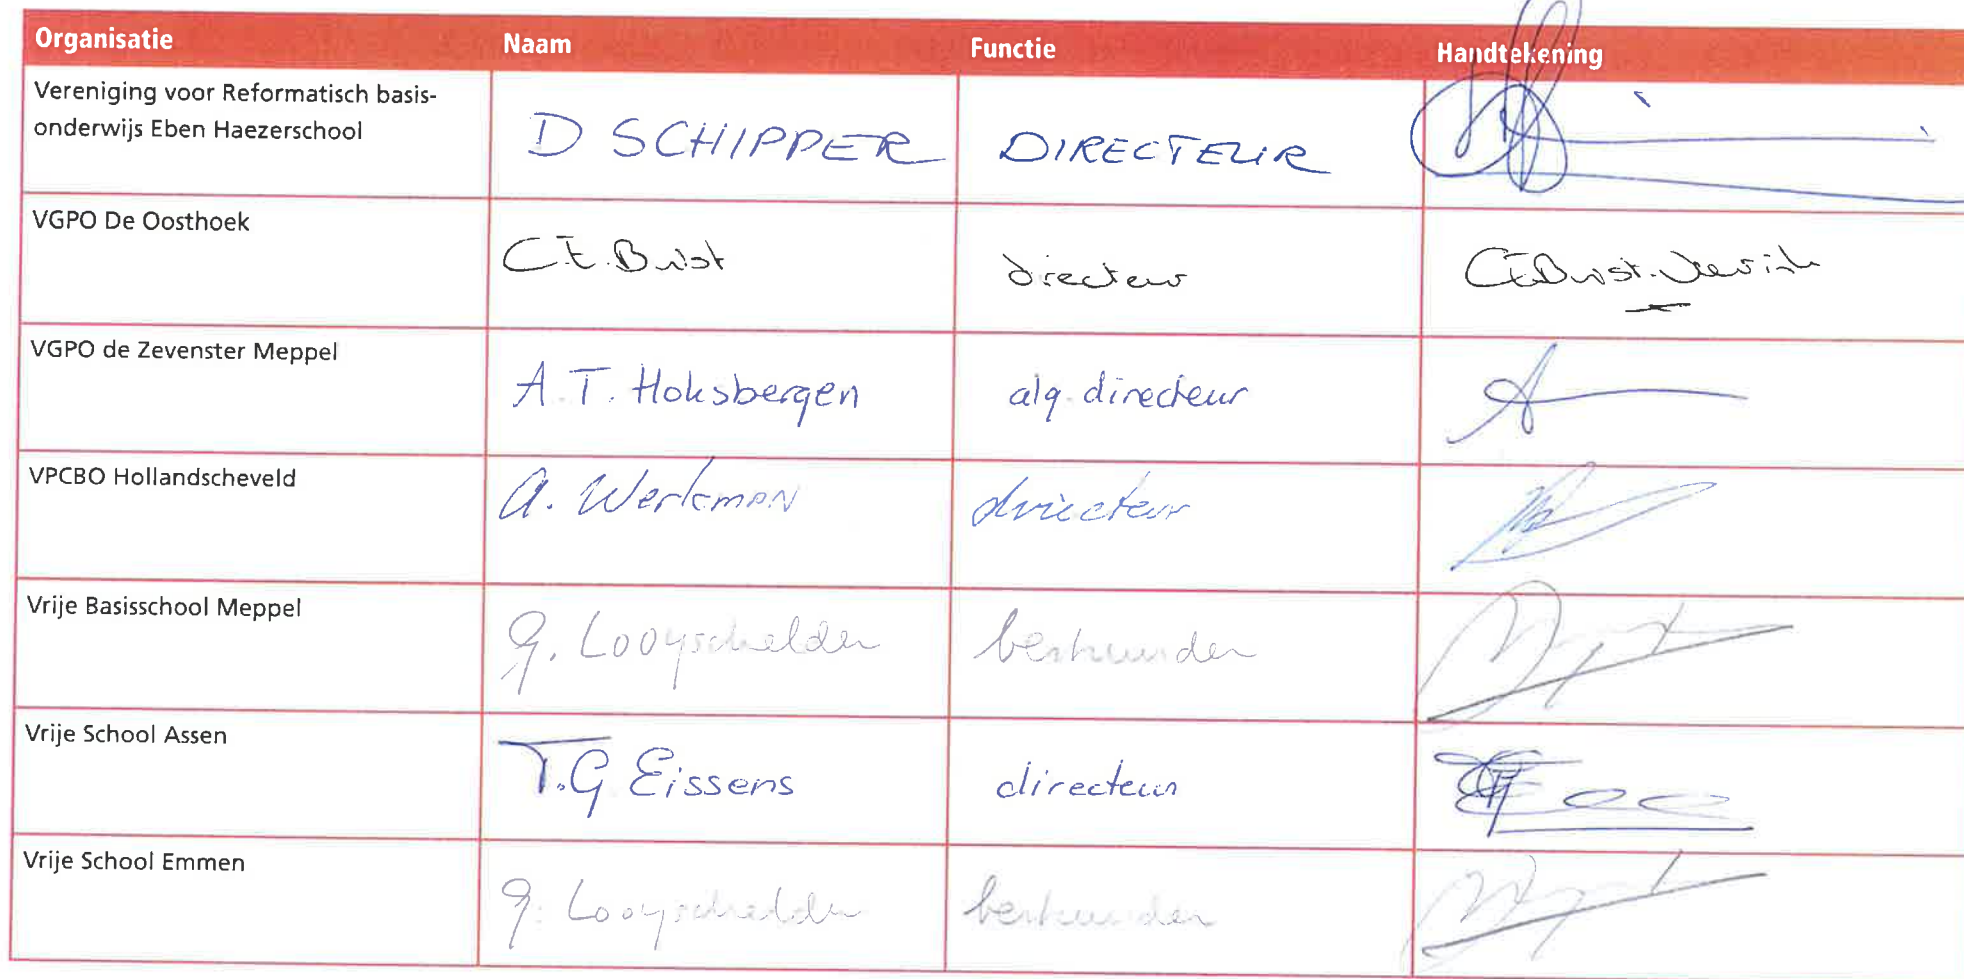 Organisatie Naam Functie Handtekening
Vereniging voor Reformatisch basis-
onderwijs Eben Haezerschool
D SCHIPPER DIRECTEUR
VGPO De Oosthoek
C.E. Buist directeur
VGPO de Zevenster Meppel
A.T. Hoksbergen alg. directeur
VPCBO Hollandscheveld
A. Werkman directeur
Vrije Basisschool Meppel
G. Looyschelder bestuurder
Vrije School Assen
T.G. Eissens directeur
Vrije School Emmen
G. Looyschelder bestuurder